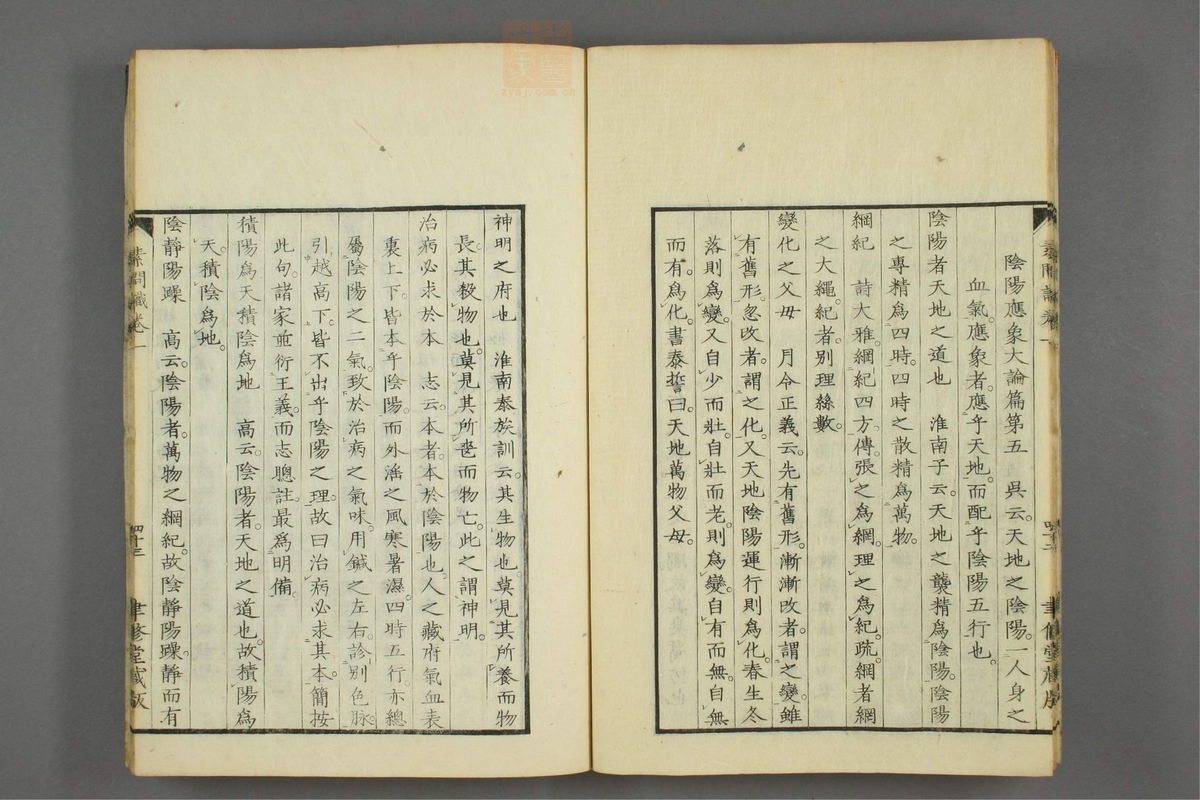 陰陽應象大論篇第五　吳云。天地之陰陽。一人身之
血氣。應象者。應乎天地。而配乎陰陽五行也。
陰陽者天地之道也　淮南子云。天地之襲精爲陰陽。陰陽
之專精爲四時。四時之散精爲萬物。
綱紀　詩大雅。綱紀四方。傳。張之爲綱。理之爲紀。疏。綱者網
之大繩。紀者。別理絲數。
變化之父母　月令正義云。先有舊形。漸漸改者。謂之變。雖
有舊形。忽改者。謂之化。又天地陰陽運行則爲化。春生冬
落則爲變。又自少而壯。自壯而老。則爲變。自有而無。自無
而有。爲化。書泰誓曰。天地萬物父母。
素問識卷一
四十三
聿修堂藏版
神明之府也　淮南泰族訓云。其生物也。莫見其所養而物
長。其殺物也。莫見其所喪而物亡。此之謂神明。
治病必求於本　志云。本者。本於陰陽也。人之藏府氣血表
裏上下。皆本乎陰陽。而外淫之風寒暑濕。四時五行。亦總
屬陰陽之二氣。致於治病之氣味。用鍼之左右。診別色脉。
引越高下。皆不出乎陰陽之理。故曰治病必求其本。簡按
此句。諸家並衍王義。而志聰註。最爲明備。
積陽爲天積陰爲地　高云。陰陽者。天地之道也。故積陽爲
天。積陰爲地。
陰靜陽躁　高云。陰陽者。萬物之綱紀。故陰靜陽躁。靜而有